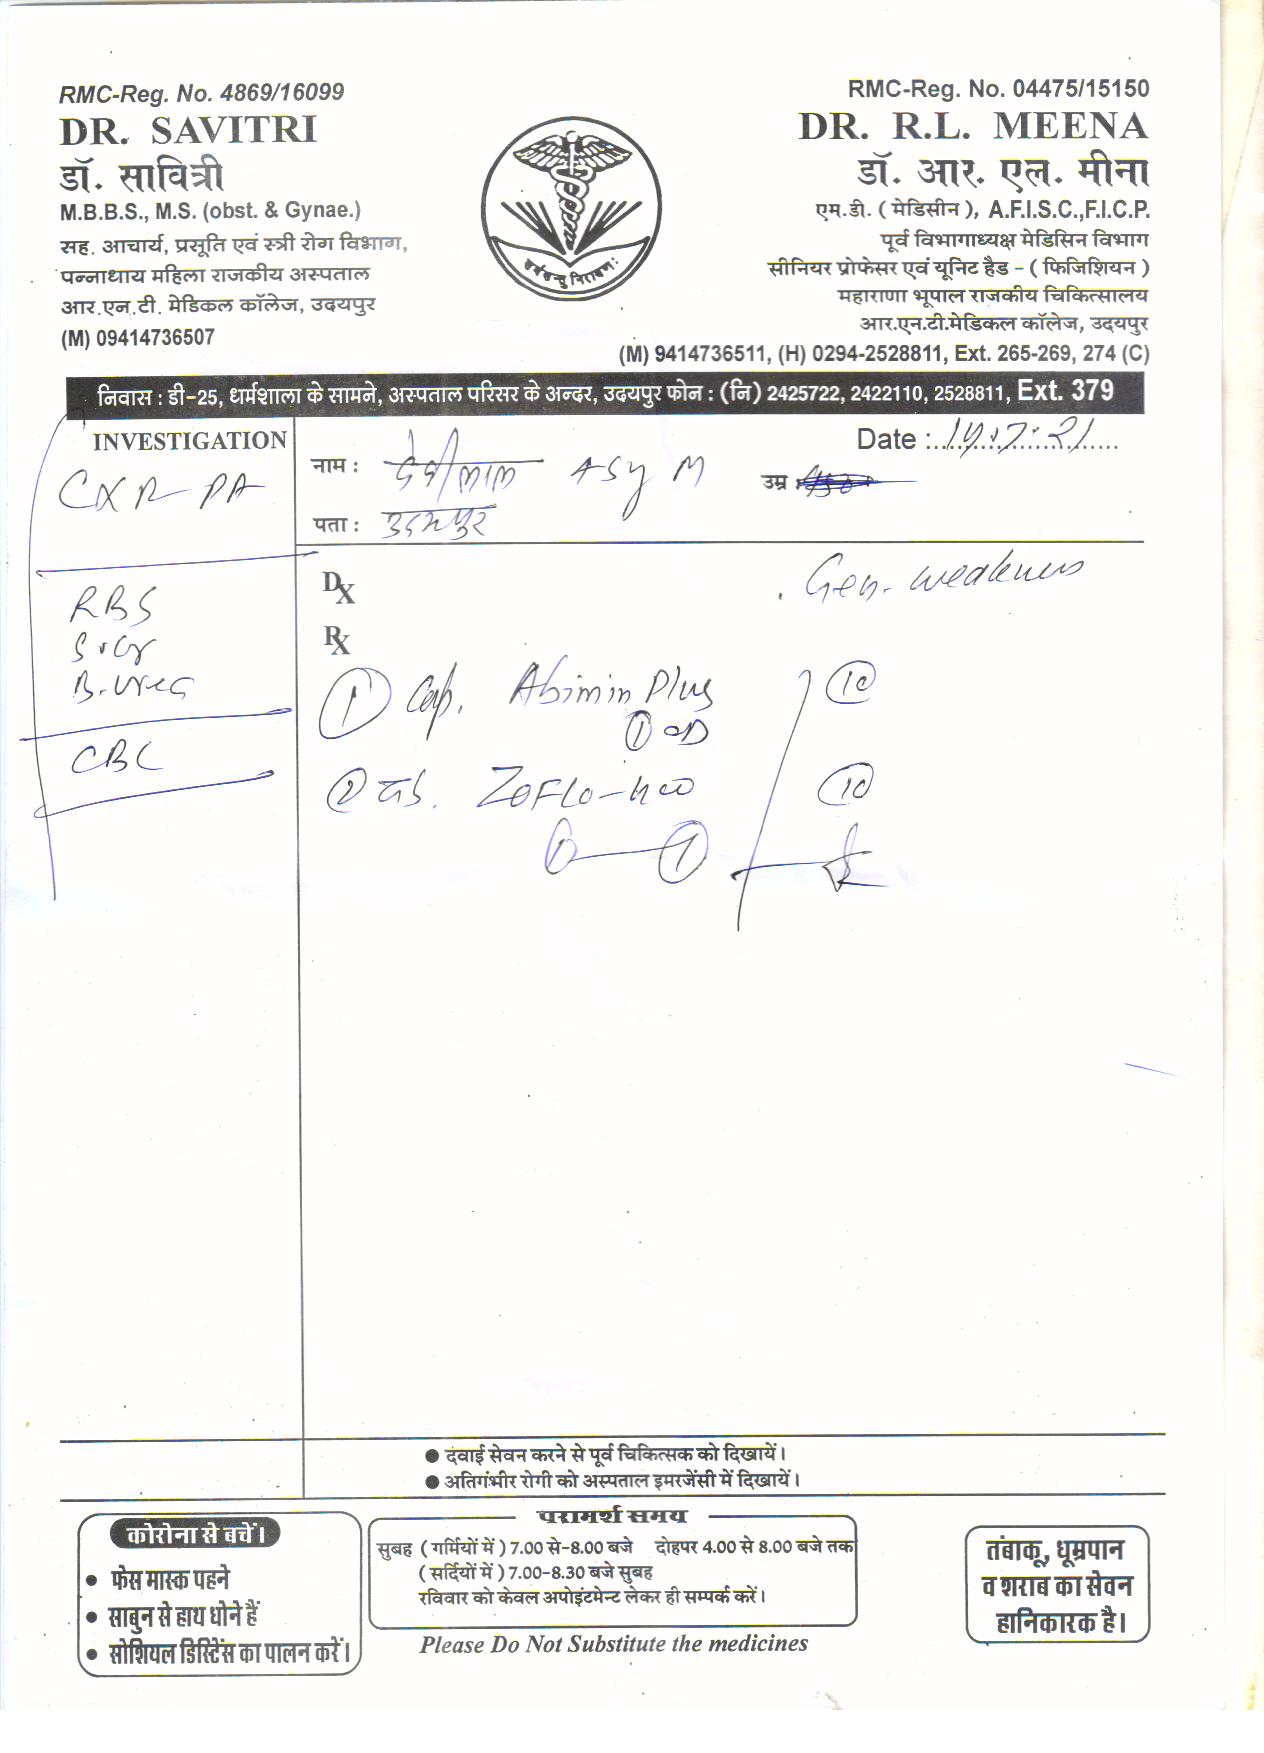 RMC-Reg. No. 4869/16099
DR. SAVITRI
डॉ. सावित्री
M.B.B.S., M.S. (obst. & Gynae.)
सह. आचार्य, प्रसूति एवं स्त्री रोग विभाग,
पन्नाधाय महिला राजकीय अस्पताल
आर.एन.टी. मेडिकल कॉलेज, उदयपुर
(M) 09414736507
RMC-Reg. No. 04475/15150
DR. R.L. MEENA
डॉ. आर. एल. मीना
एम.डी. ( मेडिसीन ), A.F.I.S.C.,F.I.C.P.
पूर्व विभागाध्यक्ष मेडिसिन विभाग
सीनियर प्रोफेसर एवं यूनिट हैड - ( फिजिशियन )
महाराणा भूपाल राजकीय चिकित्सालय
आर.एन.टी.मेडिकल कॉलेज, उदयपुर
(M) 9414736511, (H) 0294-2528811, Ext. 265-269, 274 (C)
निवास : डी-25, धर्मशाला के सामने, अस्पताल परिसर के अन्दर, उदयपुर फोन : (नि) 2425722, 2422110, 2528811, Ext. 379
INVESTIGATION
CXR-PA
RBS
S.Cr
B.urea
CBC
Date :
नाम : M
उम्र :
पता : उदयपुर
Dx
Gen. weakness
Rx
① Cap. Abimin Plus ⑩
① OD
② Tab. Zoflo-neo ⑩
① — ①
● दवाई सेवन करने से पूर्व चिकित्सक को दिखायें।
● अतिगंभीर रोगी को अस्पताल इमरजेंसी में दिखायें।
कोरोना से बचें।
• फेस मास्क पहने
• साबुन से हाथ धोने हैं
• सोशियल डिस्टिेंस का पालन करें।
परामर्श समय
सुबह ( गर्मियों में ) 7.00 से-8.00 बजे दोहपर 4.00 से 8.00 बजे तक
( सर्दियों में ) 7.00-8.30 बजे सुबह
रविवार को केवल अपोइंटमेन्ट लेकर ही सम्पर्क करें।
Please Do Not Substitute the medicines
तंबाकू, धूम्रपान
व शराब का सेवन
हानिकारक है।